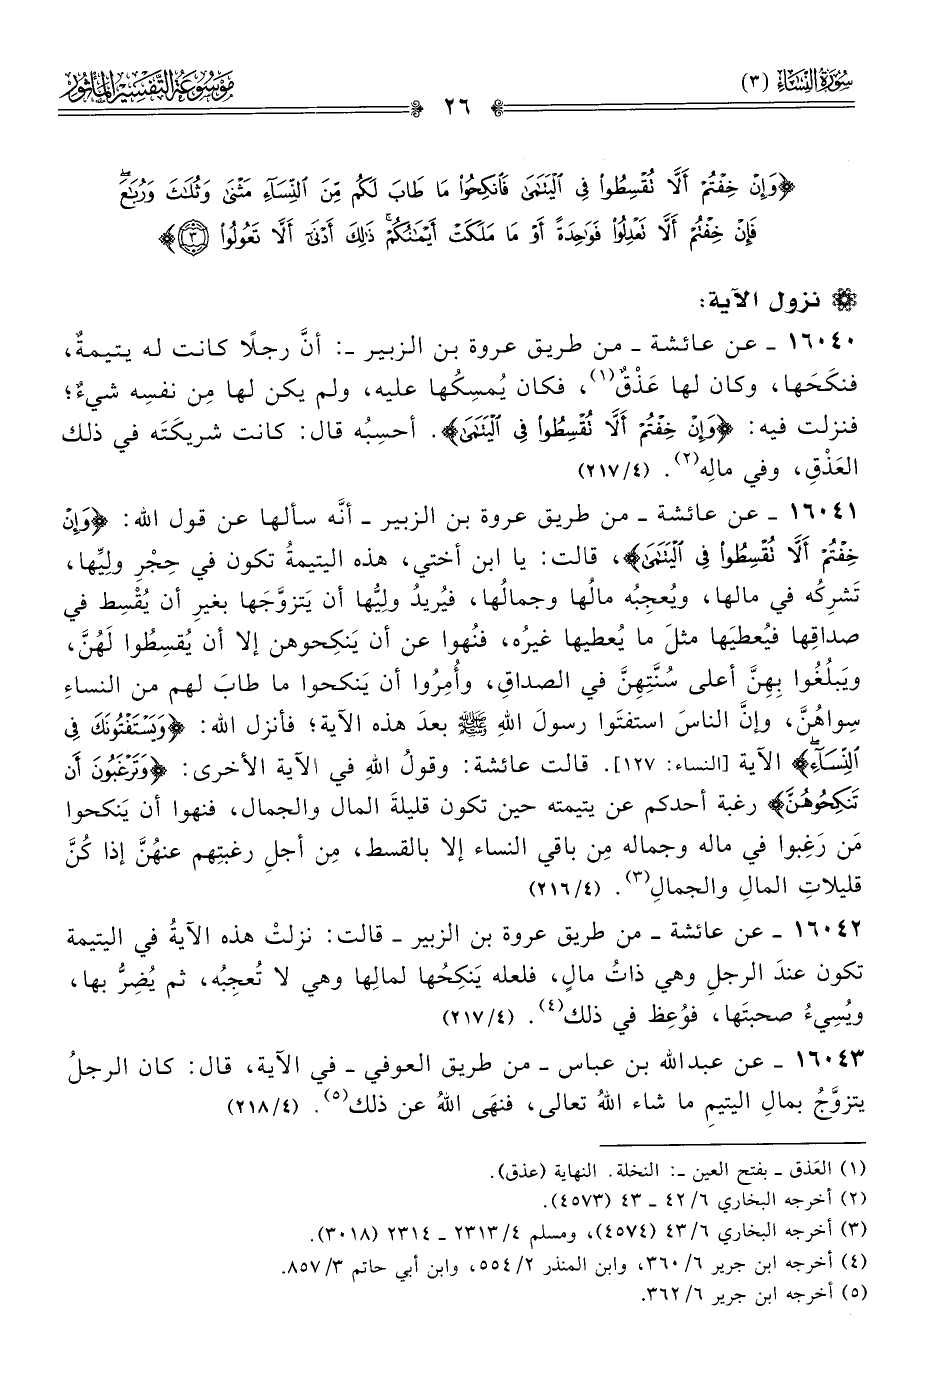 سُورَةُ النِّسَاءِ (٣)
٢٦
مَوْسُوعَةُ التَّفْسِيرِ المَأْثُورِ
﴿وَإِنْ خِفْتُمْ أَلَّا نُقْسِطُوا۟ فِى ٱلْيَتَـٰمَىٰ فَٱنكِحُوا۟ مَا طَابَ لَكُم مِّنَ ٱلنِّسَآءِ مَثْنَىٰ وَثُلَـٰثَ وَرُبَـٰعَ ۖ
فَإِنْ خِفْتُمْ أَلَّا نَعْدِلُوا۟ فَوَٰحِدَةً أَوْ مَا مَلَكَتْ أَيْمَـٰنُكُمْ ۚ ذَٰلِكَ أَدْنَىٰٓ أَلَّا تَعُولُوا۟ ٣﴾
نزول الآية:
١٦٠٤٠ ـ عن عائشة ـ من طريق عروة بن الزبير ـ: أنَّ رجلًا كانت له يتيمةٌ،
فنكَحَها، وكان لها عَذْقٌ(١)، فكان يُمسِكُها عليه، ولم يكن لها مِن نفسِه شيءٌ؛
فنزلت فيه: ﴿وَإِنْ خِفْتُمْ أَلَّا نُقْسِطُوا۟ فِى ٱلْيَتَـٰمَىٰ﴾. أحسِبُه قال: كانت شريكتَه في ذلك
العَذْقِ، وفي مالِه(٢). (٢١٧/٤)
١٦٠٤١ ـ عن عائشة ـ من طريق عروة بن الزبير ـ أنَّه سألها عن قول الله: ﴿وَإِنْ
خِفْتُمْ أَلَّا نُقْسِطُوا۟ فِى ٱلْيَتَـٰمَىٰ﴾، قالت: يا ابن أختي، هذه اليتيمةُ تكون في حِجْرِ وليِّها،
تَشرَكُه في مالها، ويُعجِبُه مالُها وجمالُها، فيُريدُ وليُّها أن يَتزوَّجَها بغيرِ أن يُقْسِط في
صداقِها فيُعطيَها مثلَ ما يُعطيها غيرُه، فنُهوا عن أن يَنكِحوهن إلا أن يُقسِطُوا لَهُنَّ،
ويَبلُغُوا بِهِنَّ أعلى سُنَّتِهِنَّ في الصداقِ، وأُمِرُوا أن يَنكحوا ما طابَ لهم من النساءِ
سِواهُنَّ، وإنَّ الناسَ استفتَوا رسولَ اللهِ ﷺ بعدَ هذه الآية؛ فأنزل الله: ﴿وَيَسْتَفْتُونَكَ فِى
ٱلنِّسَآءِ ۖ﴾ الآية [النساء: ١٢٧]. قالت عائشة: وقولُ اللهِ في الآية الأخرى: ﴿وَتَرْغَبُونَ أَن
تَنكِحُوهُنَّ﴾ رغبة أحدكم عن يتيمته حين تكون قليلةَ المال والجمال، فنهوا أن يَنكحوا
مَن رَغِبوا في ماله وجماله مِن باقي النساء إلا بالقسط، مِن أجلِ رغبتِهم عنهُنَّ إذا كُنَّ
قليلاتِ المالِ والجمالِ(٣). (٢١٦/٤)
١٦٠٤٢ ـ عن عائشة ـ من طريق عروة بن الزبير ـ قالت: نزلتْ هذه الآيةُ في اليتيمة
تكون عندَ الرجلِ وهي ذاتُ مالٍ، فلعله يَنكِحُها لمالِها وهي لا تُعجِبُه، ثم يُضِرُّ بها،
ويُسِيءُ صحبتَها، فوُعِظ في ذلك(٤). (٢١٧/٤)
١٦٠٤٣ ـ عن عبدالله بن عباس ـ من طريق العوفي ـ في الآية، قال: كان الرجلُ
يتزوَّجُ بمالِ اليتيمِ ما شاء اللهُ تعالى، فنهَى اللهُ عن ذلك(٥). (٢١٨/٤)
(١) العَذق ـ بفتح العين ـ: النخلة. النهاية (عذق).
(٢) أخرجه البخاري ٤٢/٦ ـ ٤٣ (٤٥٧٣).
(٣) أخرجه البخاري ٤٣/٦ (٤٥٧٤)، ومسلم ٢٣١٣/٤ ـ ٢٣١٤ (٣٠١٨).
(٤) أخرجه ابن جرير ٣٦٠/٦، وابن المنذر ٥٥٤/٢، وابن أبي حاتم ٨٥٧/٣.
(٥) أخرجه ابن جرير ٣٦٢/٦.